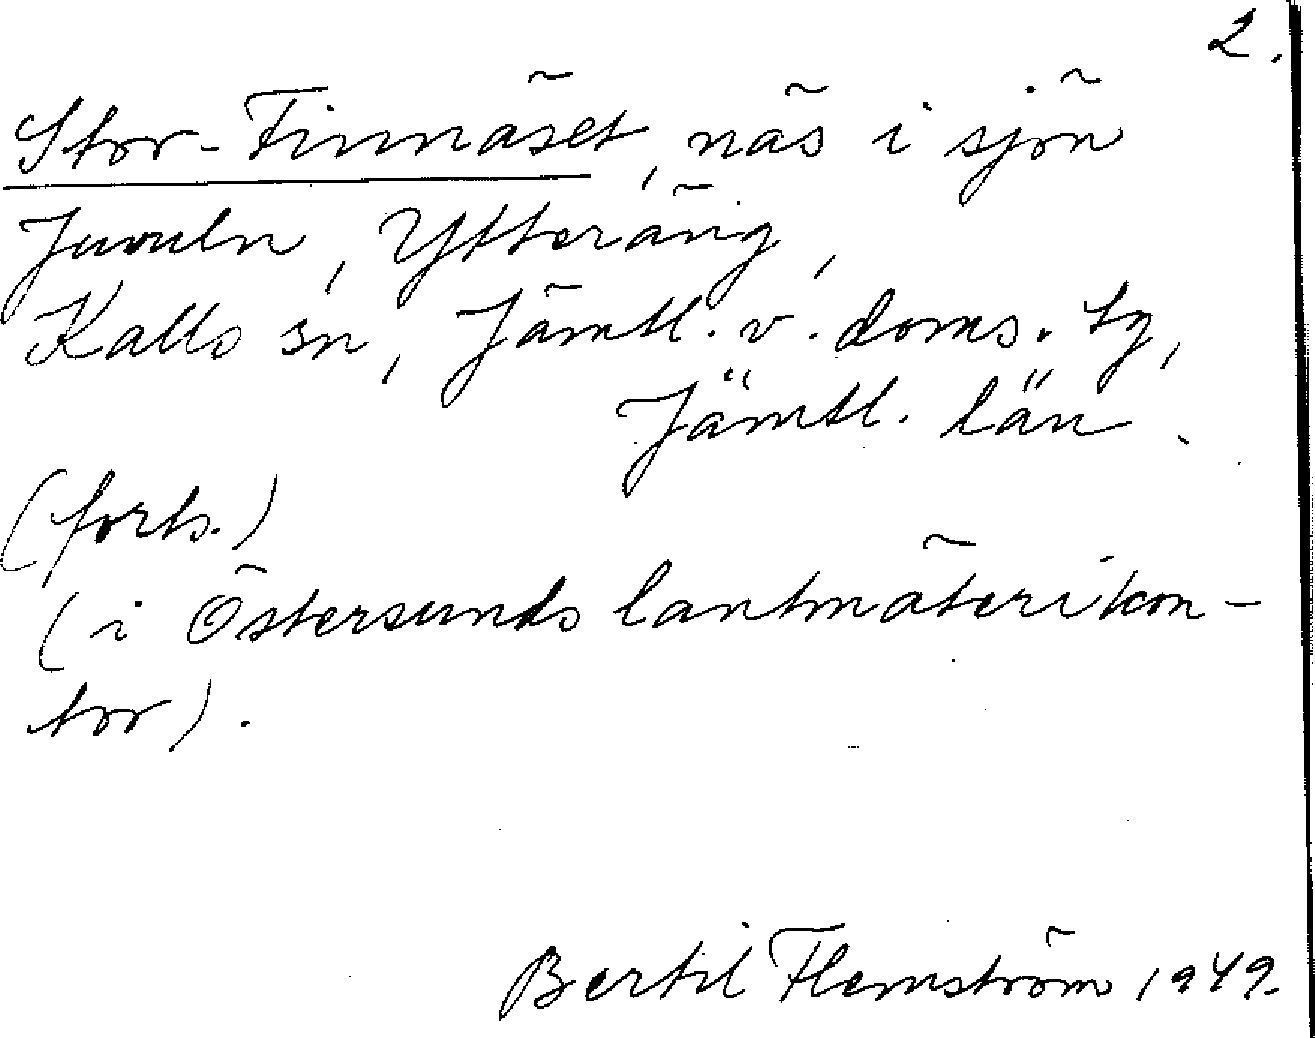 2.
Stor-Finnäset, näs i sjön
Juvuln, Ytteräng,
Kalls sn, Jämtl. v. doms. tg,
Jämtl. län.
(forts.)
(i Östersunds lantmäterikon-
tor).
Bertil Flemström 1949.